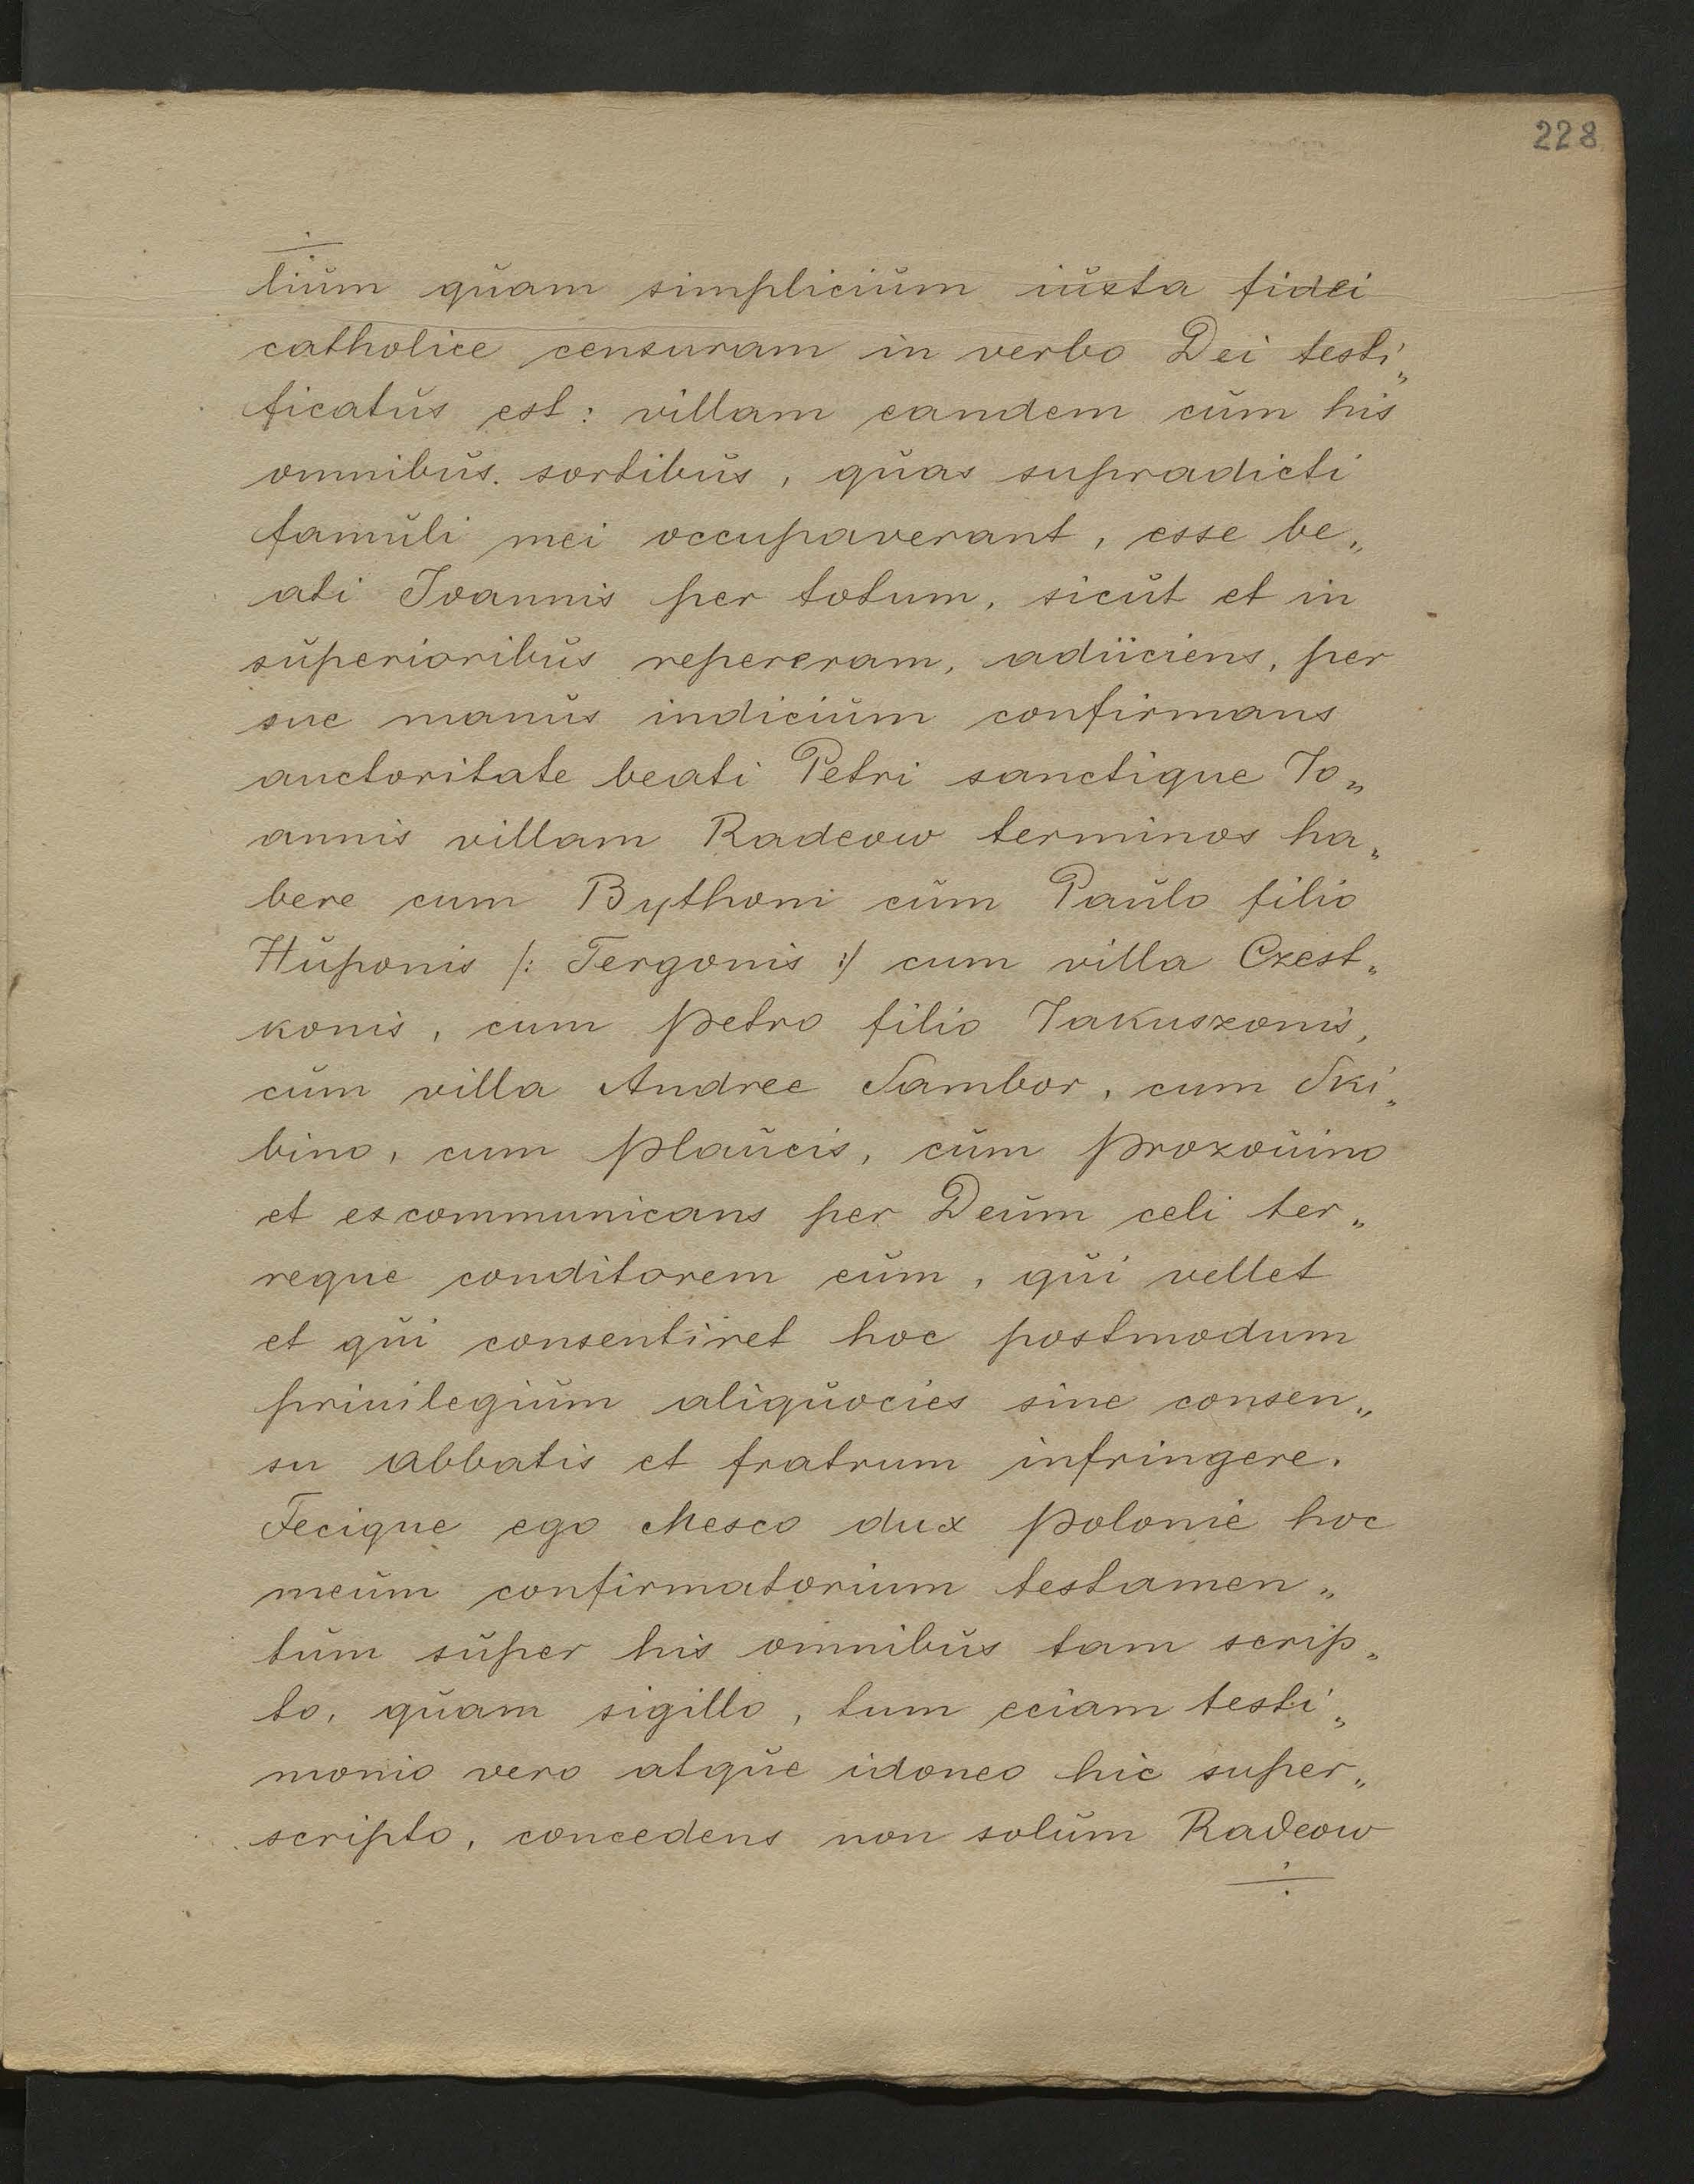 228
÷
lium quam simplicium iuxta fidei
catholice censuram in verbo Dei testi„
ficatus est: villam eandem cum his
omnibus. sortibus, quas supradicti
famuli mei occupaverant, esse be„
ati Ioannis per totum, sicut et in
superioribus repereram, adiiciens, per
sue manus indicium confirmans
auctoritate beati Petri sanctique Io„
annis villam Radeow terminos ha„
bere cum Bythoni cum Paulo filio
Huponis /: Tergonis :/ cum villa Czest„
konis, cum Petro filio Jakuszonis,
cum villa Andree Sambor, cum Ski„
bino, cum Plaucis, cum Prozouino
et excommunicans per Deum celi ter„
reque conditorem eum, qui vellet
et qui consentiret hoc postmodum
priuilegium aliquocies sine consen„
su abbatis et fratrum infringere.
Fecique ego Mesco dux Polonie hoc
meum confirmatorium testamen„
tum super his omnibus tam scrip„
to, quam sigillo, tum eciam testi„
monio vero atque idoneo hic super„
scripto, concedens non solum Radeow
÷